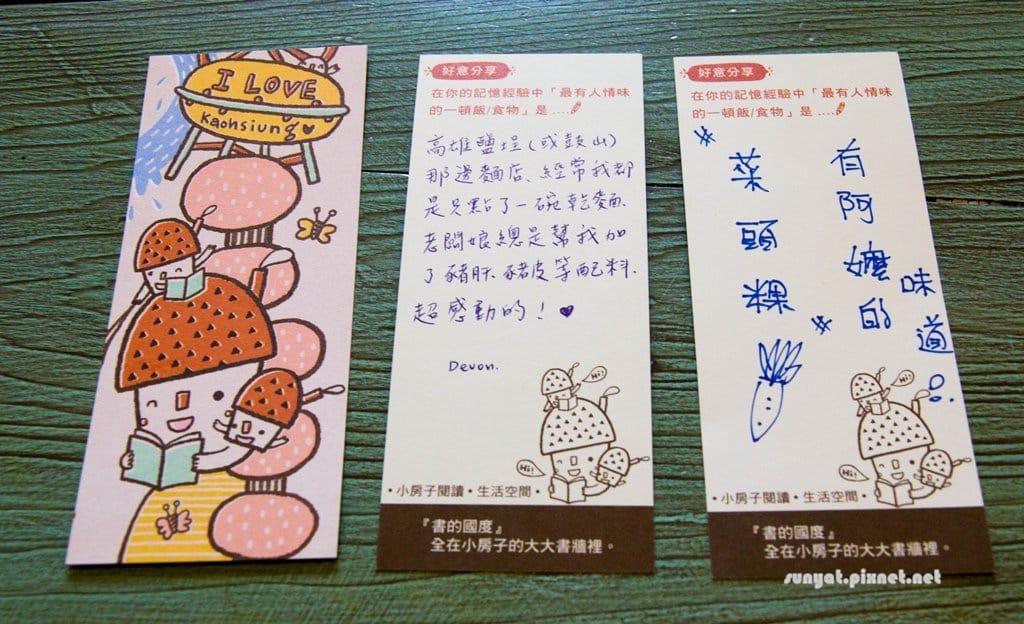 I LOVE
Kaohsiung
好意分享
在你的記憶經驗中「最有人情味
的一頓飯/食物」是 ....
高雄鹽埕(或鼓山)
那邊麵店、經常我都
是只點了一碗乾麵、
老闆娘總是幫我加
了豬肝、豬皮等配料、
超感動的！
Devon.
Hi!
Hi!
•小房子閱讀•生活空間•
『書的國度』
全在小房子的大大書牆裡。
好意分享
在你的記憶經驗中「最有人情味
的一頓飯/食物」是 ....
菜頭粿
有阿嬤的
味道。
Hi!
Hi!
•小房子閱讀•生活空間•
『書的國度』
全在小房子的大大書牆裡。
sunyat.pixnet.net